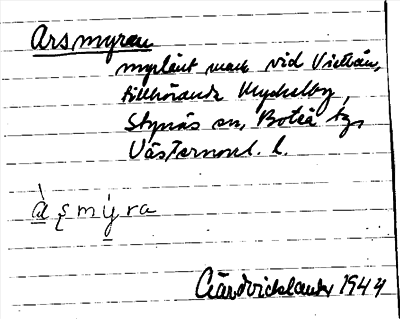 Arsmyran
myplånt mark vid Viestån,
tillhörande Myckelby,
Styrnäs sn, Boteå tg,
Västernorrl. l.
àşmýra
1944